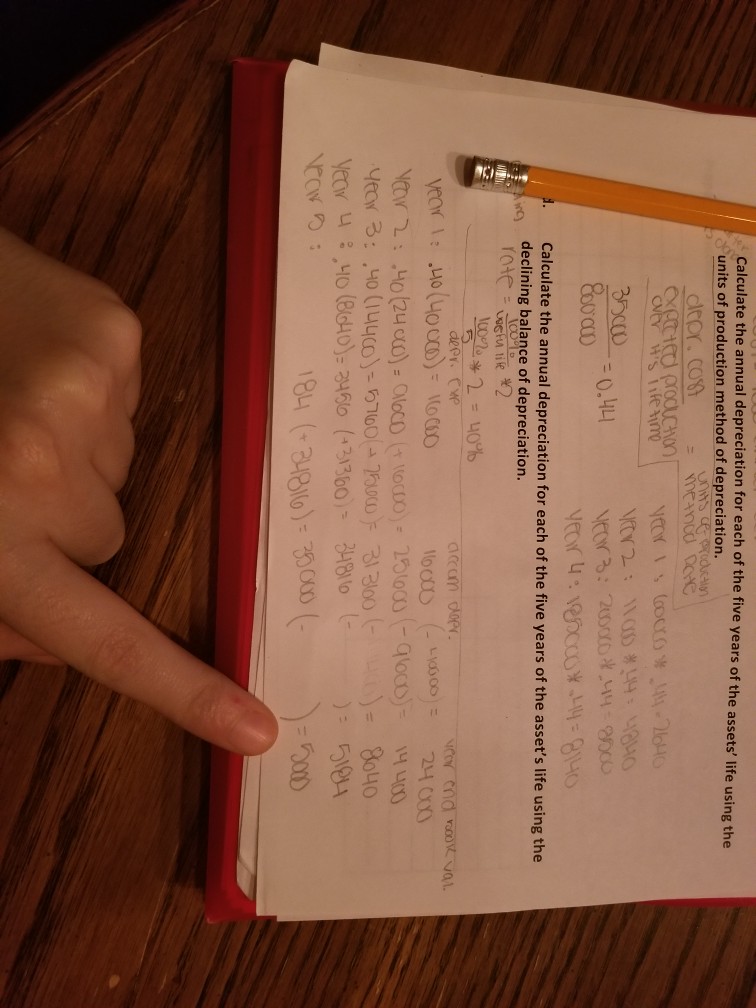 Calculate the annual depreciation for each of the five years of the assets' life using the
units of production method of depreciation.
depr. cost = units of production
expected production method rate
over it's lifetime
35000 = 0.44
80000
year 2: 11000 * .44 = 4840
year 3: 20000 * .44 = 8800
d. Calculate the annual depreciation for each of the five years of the asset's life using the
declining balance of depreciation.
rate = 100% * 2
useful life
100% * 2 = 40%
5
depr. exp accum depr. year end book val
year 1: .40(40000) = 16000 16000 (-40000) = 24000
year 2: .40(24000) = 9600 (+16000) = 25600 (-9600) = 14400
year 3: .40(14400) = 5760 (+25600) = 31360 (- ) = 8640
year 4: .40(8640) = 3456 (+31360) = 34816 (- ) = 5184
year 5: 184 (+34816) = 35000 (- ) = 5000